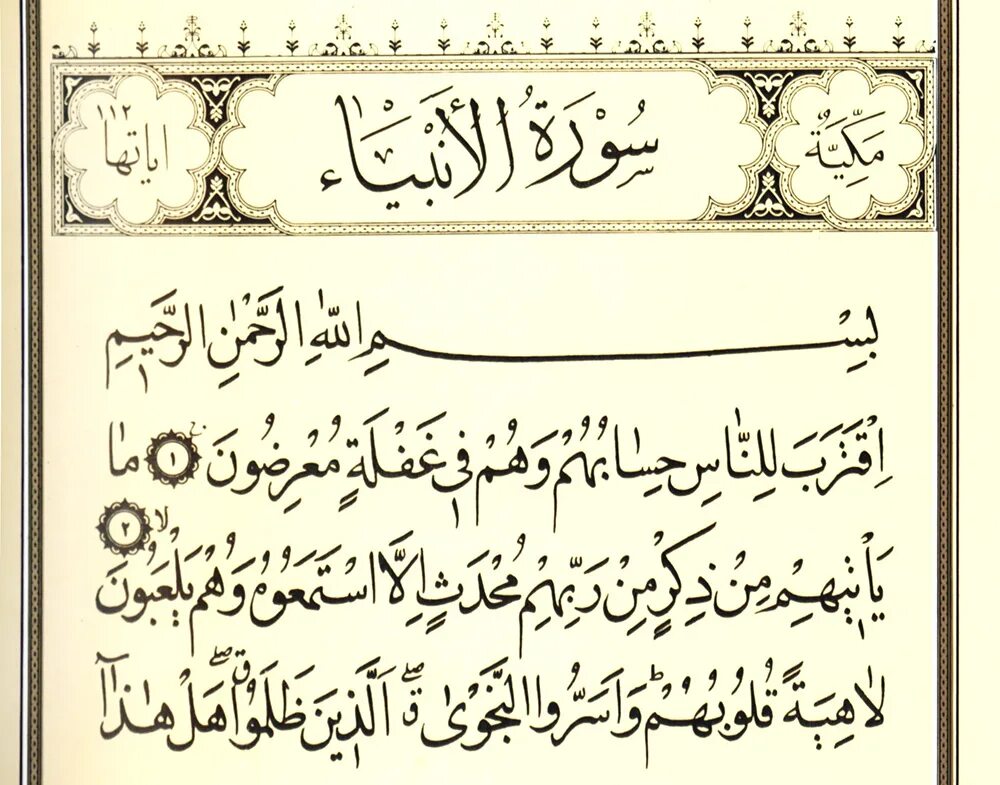 مَكِّيَّةٌ سُوْرَةُ الْأَنْبِيَاء اياتها ١١٢
بِسْمِ اللّٰهِ الرَّحْمٰنِ الرَّحٖيمِ
اِقْتَرَبَ لِلنَّاسِ حِسَابُهُمْ وَهُمْ فٖى غَفْلَةٍ مُعْرِضُونَ ج ١ مَا
يَأْتٖيهِمْ مِنْ ذِكْرٍ مِنْ رَبِّهِمْ مُحْدَثٍ اِلَّا اسْتَمَعُوهُ وَهُمْ يَلْعَبُونَ لا ٢
لَاهِيَةً قُلُوبُهُمْ ط وَاَسَرُّوا النَّجْوٰى ق صلے اَلَّذٖينَ ظَلَمُوا ق صلے هَلْ هٰذَا